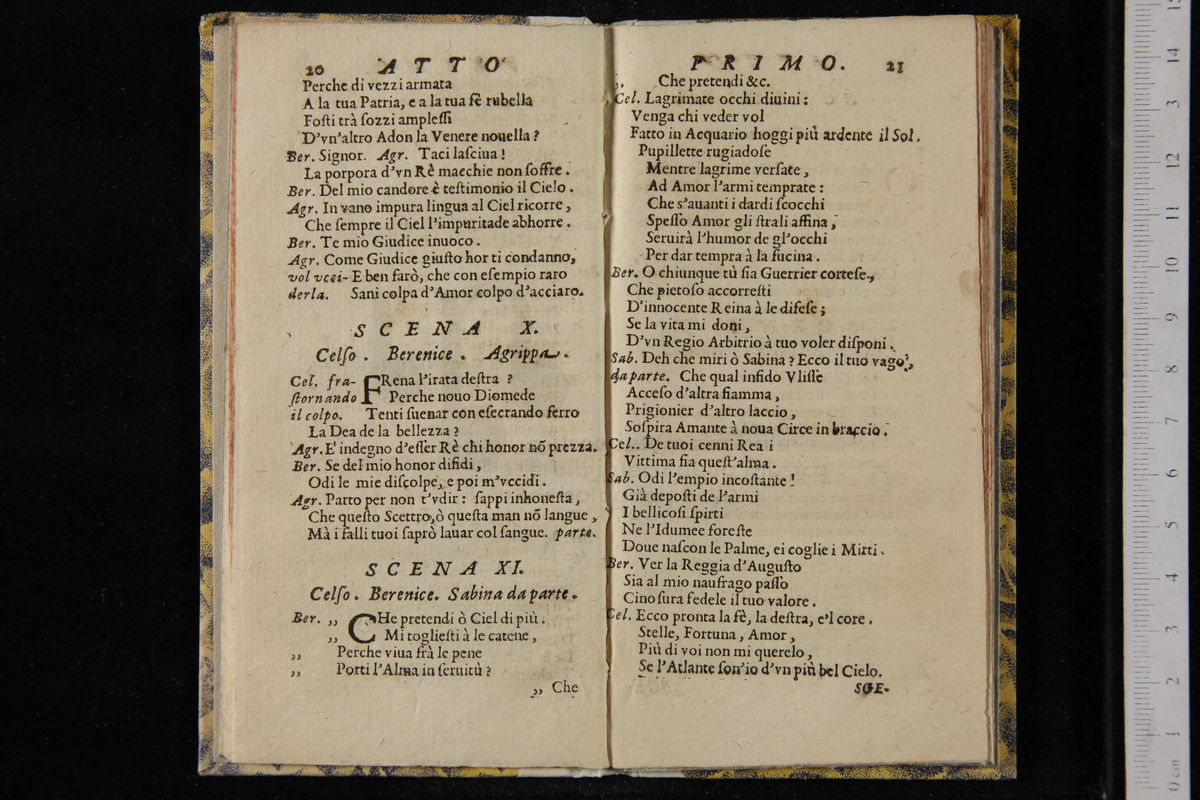 20 ATTO
Perche di vezzi armata
A la tua Patria, e a la tua fè rubella
Fosti trà sozzi amplessi
D'vn'altro Adon la Venere nouella?
Ber. Signor. Agr. Taci lasciua!
La porpora d'vn Rè macchie non soffre.
Ber. Del mio candore è testimonio il Cielo.
Agr. In vano impura lingua al Ciel ricorre,
Che sempre il Ciel l'impuritade abhorre.
Ber. Te mio Giudice inuoco.
Agr. Come Giudice giusto hor ti condanno,
vol vcci- E ben farò, che con esempio raro
derla. Sani colpa d'Amor colpo d'acciaro.
SCENA X.
Celso. Berenice. Agrippa.
Cel. fra- FRena l'irata destra?
stornando Perche nouo Diomede
il colpo. Tenti suenar con esecrando ferro
La Dea de la bellezza?
Agr. E' indegno d'esser Rè chi honor nõ prezza.
Ber. Se del mio honor difidi,
Odi le mie discolpe, e poi m'vccidi.
Agr. Parto per non t'vdir: sappi inhonesta,
Che questo Scettro, ò questa man nõ langue,
Mà i falli tuoi saprò lauar col sangue. parte.
SCENA XI.
Celso. Berenice. Sabina da parte.
Ber. ,, CHe pretendi ò Ciel di più.
,, Mi togliesti à le catene,
,, Perche viua frà le pene
,, Porti l'Alma in seruitù?
,, Che
PRIMO. 21
,, Che pretendi &c.
Cel. Lagrimate occhi diuini:
Venga chi veder vol
Fatto in Acquario hoggi più ardente il Sol.
Pupillette rugiadose
Mentre lagrime versate,
Ad Amor l'armi temprate:
Che s'auanti i dardi scocchi
Spesso Amor gli strali affina,
Seruirà l'humor de gl'occhi
Per dar tempra à la fucina.
Ber. O chiunque tù sia Guerrier cortese,
Che pietoso accorresti
D'innocente Reina à le difese;
Se la vita mi doni,
D'vn Regio Arbitrio à tuo voler disponi.
Sab. Deh che miri ò Sabina? Ecco il tuo vago,
da parte. Che qual infido Vlisse
Acceso d'altra fiamma,
Prigionier d'altro laccio,
Sospira Amante à noua Circe in braccio.
Cel.. De tuoi cenni Rea i
Vittima sia quest'alma.
Sab. Odi l'empio incostante!
Già deposti de l'armi
I bellicosi spirti
Ne l'Idumee foreste
Doue nascon le Palme, ei coglie i Mirti.
Ber. Ver la Reggia d'Augusto
Sia al mio naufrago passo
Cinosura fedele il tuo valore.
Cel. Ecco pronta la fè, la destra, e'l core.
Stelle, Fortuna, Amor,
Più di voi non mi querelo,
Se l'Atlante son'io d'vn più bel Cielo.
SCE-